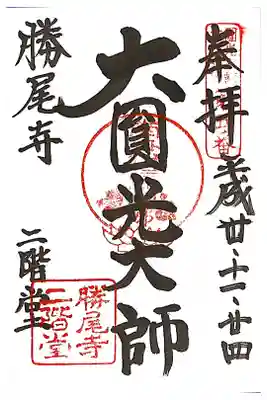 奉拝 平成廿、十一、廿四
大圓光大師
勝尾寺 二階堂
勝尾寺
二階堂